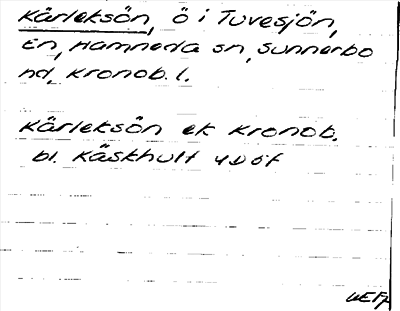 Kärleksön, ö i Tuvesjön,
En, Hamneda sn, Sunnerbo
hd, Kronob. l.
Kärleksön ek Kronob.
bl. Käskhult 4D6f